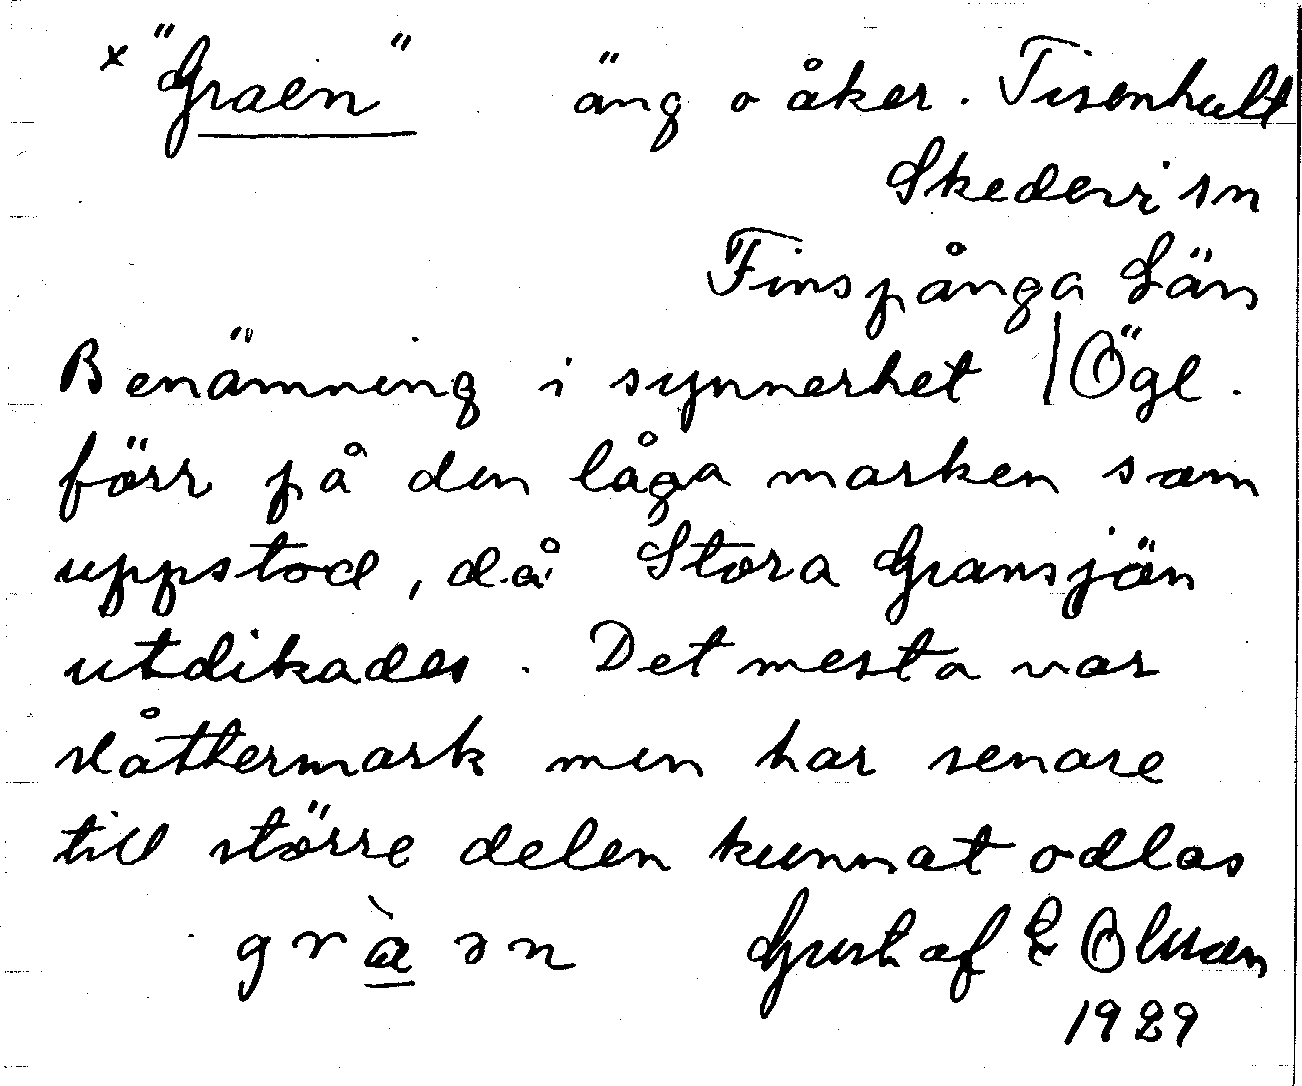 x "Graen" äng o åker. Tisenhult
Skedevi sn
Finspånga Län
Benämning i synnerhet | Ögl.
förr på den låga marken som
uppstod, då Stora Gransjön
utdikades. Det mesta var
slåttermark men har senare
till större delen kunnat odlas
gràən Gustaf E Olsson
1929